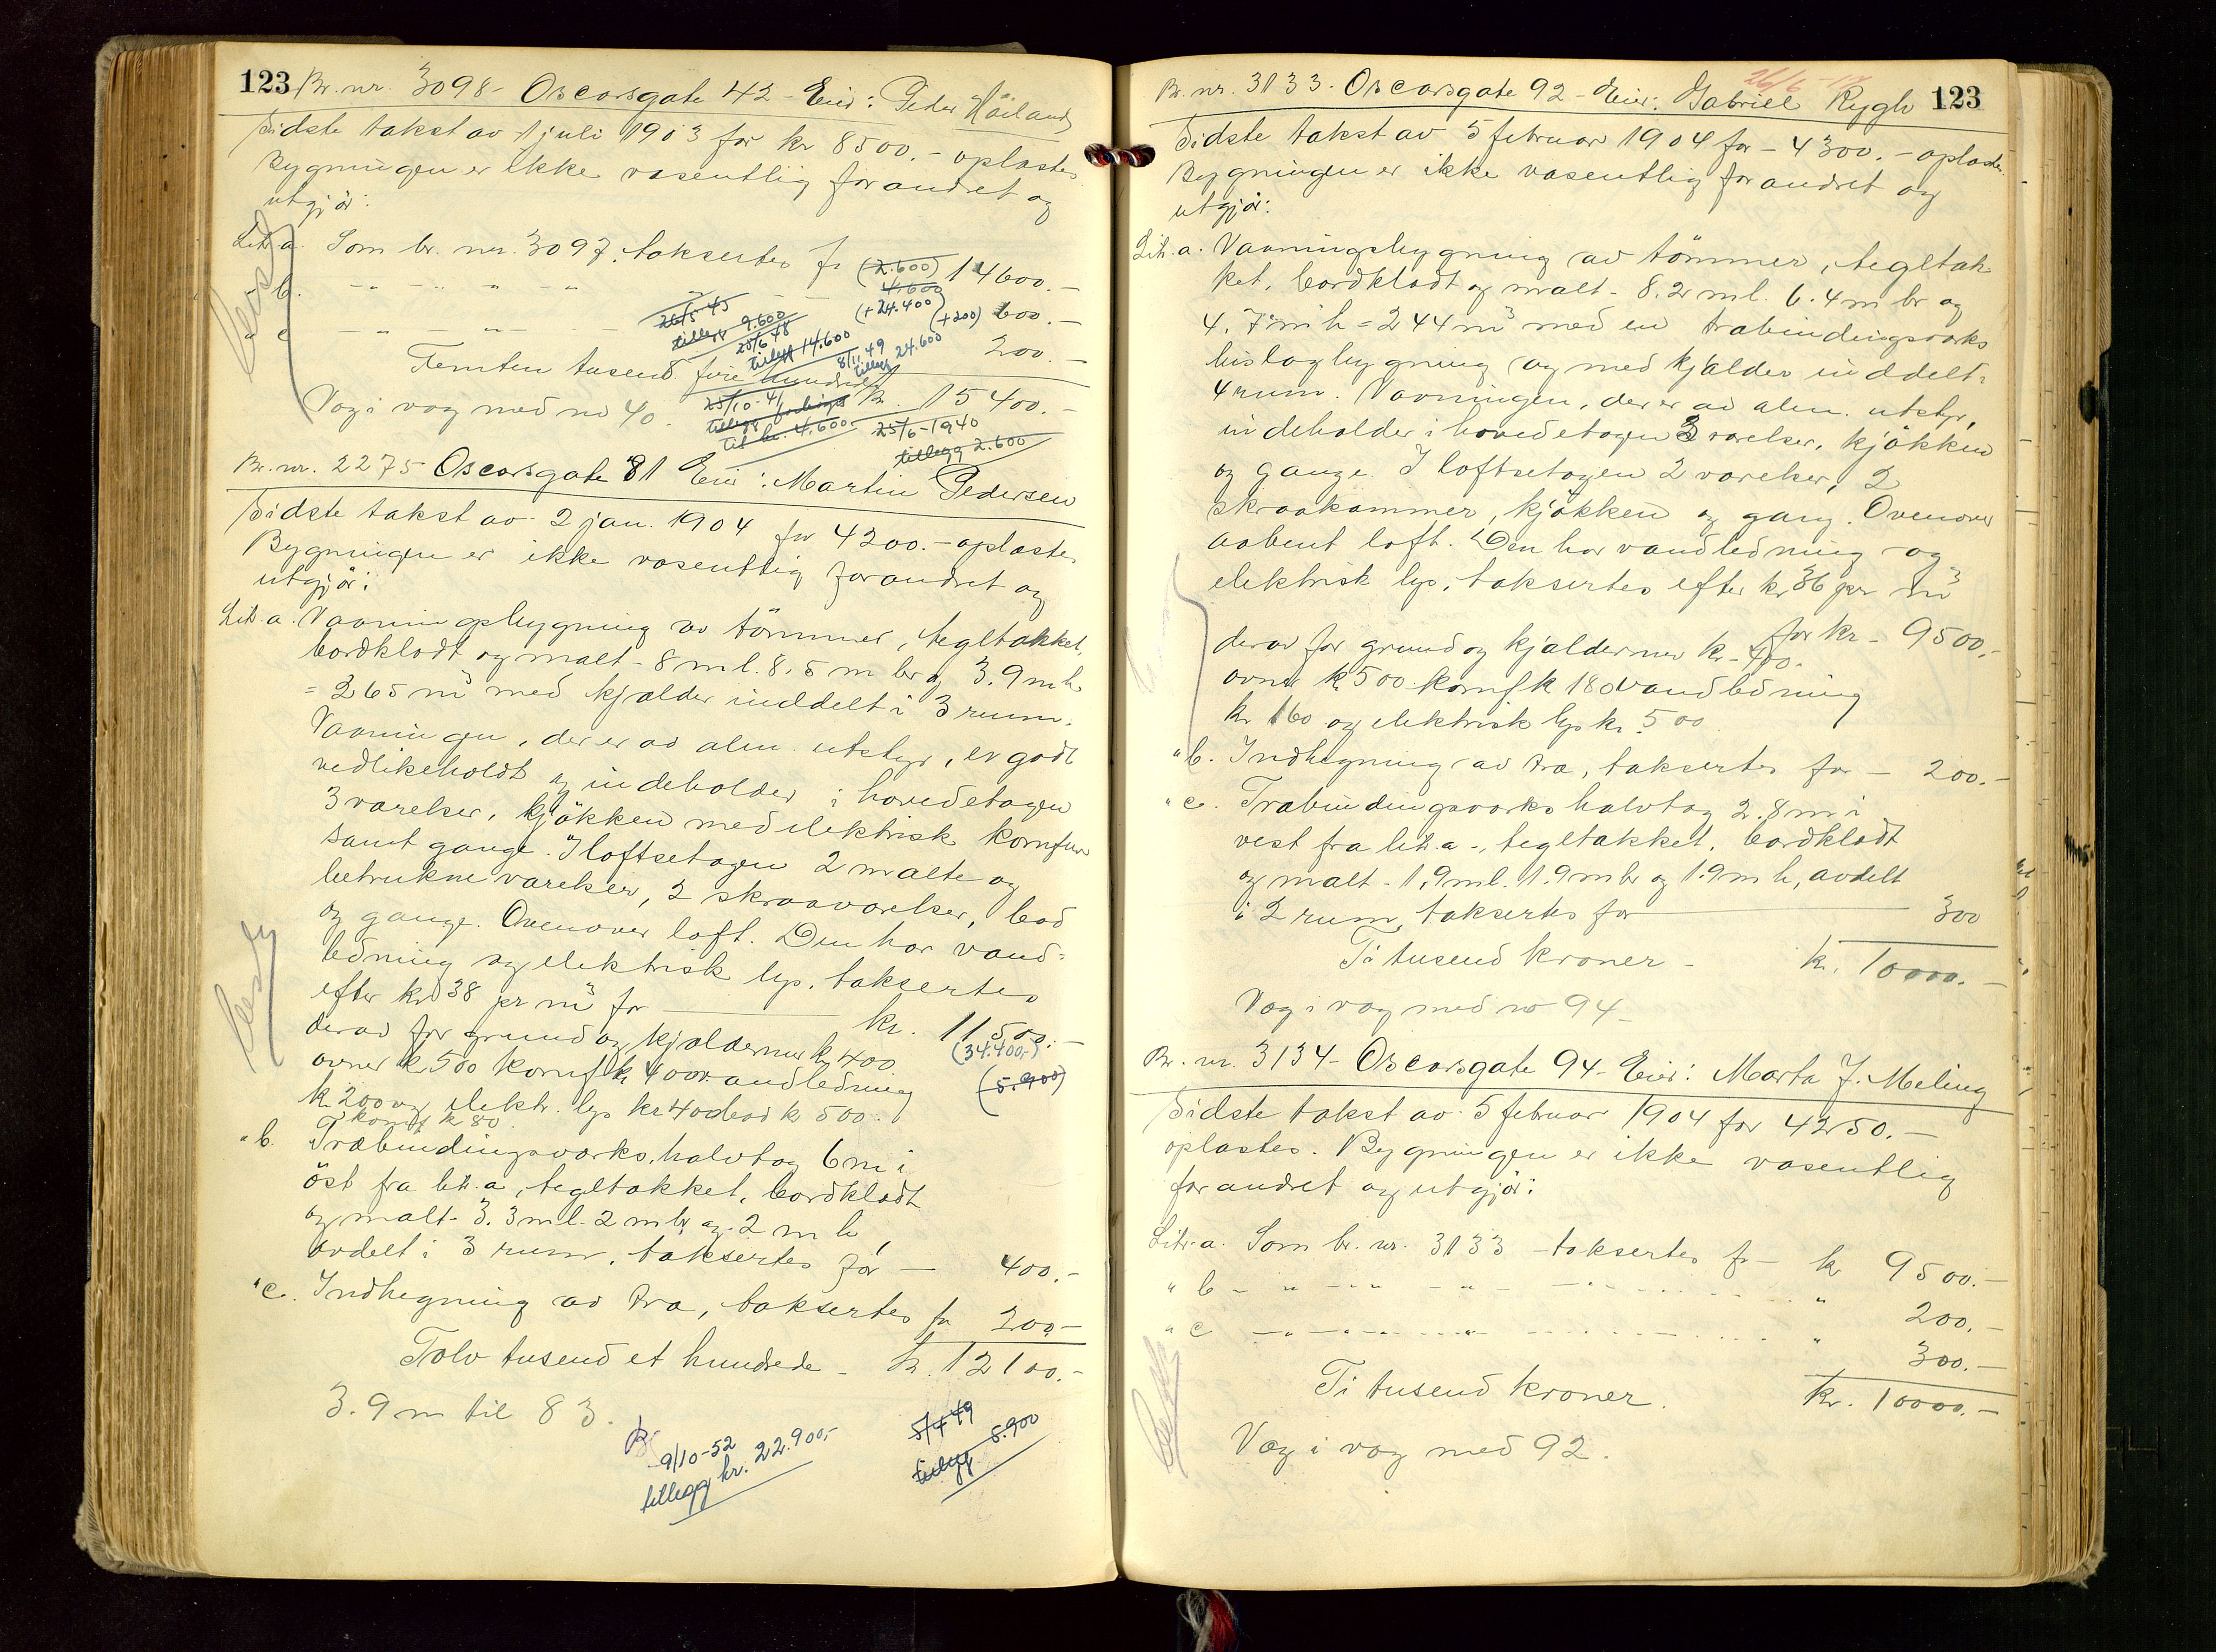 123 Br. nr. 3098 - Oscarsgate 42 - Eier: Peder Häiland
Sidste takst av 1 juli 1903 for kr 8500.- oplæstes
Bygningen er ikke væsentlig forandret og
utgjör:
Litr. a. Som br. nr. 3097, taksertes for (2.600) 14600.-
4.600
(+24.400)
" b. - " - " - " - (+200) 600.-
" c - " - " - " - 200.-
26/5 45
tillegg 9.600
25/6 48
tillegg 14.600
8/11 49
tillegg 24.600
Femten tusend fire hundrede kr. 15400.-
Væg i væg med no 40.
25/10-41
tillegg forhöiet
til kr. 4.600
25/6-1940
tillegg 2.600
Br. nr. 2275 Oscarsgate 81 Eier: Martin Pedersen
Sidste takst av 2 jan. 1904 for 4200.- oplæstes
Bygningen er ikke væsentlig forandret og
utgjör:
Litr. a. Vaaningsbygning av tömmer, tegltækket,
bordklædt og malt - 8 m l. 8,5 m br og 3.9 m h
= 265 m³ med kjælder inddelt i 3 rum.
Vaaningen, der er av alm. utstyr, er godt
vedlikeholdt og indeholder i hovedetagen
3 værelser, kjökken med elektrisk komfur
samt gange. I loftsetagen 2 malte og
betrukne værelser, 2 skraaværelser, bad
og gange. Ovenover loft. Den har vand-
ledning og elektrisk lys, taksertes
efter kr 38 pr m³ for kr. 11500.-
(34.400,-)
derav for grund og kjældermur kr 400
ovner kr 500 komf kr 400 vandledning (5.900)
kr 200 og elektr. lys kr 400 bad kr 500.
komf k 80
" b. Træbindingsværks halvtag 6 m i
öst fra litr. a, tegltækket, bordklædt
og malt - 3.3 m l. 2 m br og 2 m h,
avdelt i 3 rum, taksertes for - 400.-
" c. Indhegning av træ, taksertes for 200.-
Tolv tusend et hundrede - kr. 12100.-
3.9 m til 83.
9/10-52
tillegg kr. 22.900,-
5/4 49
tillegg 5.900
26/6-
Br. nr. 3133. Oscarsgate 92 - Eier: Gabriel Rygh 123
Sidste takst av 5 februar 1904 for - 4300.- oplæstes.
Bygningen er ikke væsentlig forandret og
utgjör:
Litr. a. Vaaningsbygning av tömmer, tegltæk
ket, bordklædt og malt - 8.2 m l. 6.4 m br og
4.7 m h = 244 m³ med en træbindingsværks
bislagbygning og med kjælder inddelt i
4 rum. Vaaningen, der er av alm. utstyr,
indeholder i hovedetagen 3 værelser, kjökken
og gange. I loftsetagen 2 værelser, 2
skraakammer, kjökken og gang. Ovenover
aabent loft. Den har vandledning og
elektrisk lys, taksertes efter kr 36 pr m³
for kr - 9500.-
derav for grund og kjældermur kr - 400.-
ovner k 500 komf k 180 vandledning
kr 160 og elektrisk lys kr. 500
" b. Indhegning av træ, taksertes for - 200.-
" c. Træbindingsværks halvtag 2.8 m i
vest fra litr. a -, tegltækket, bordklædt
og malt - 1,9 m l. 1.9 m br og 1.9 m h, avdelt
i 2 rum, taksertes for 300
Ti tusend kroner - kr. 10000.-
Væg i væg med no 94 -
Br. nr. 3134 - Oscarsgate 94 - Eier: Marta J. Meling
Sidste takst av 5 februar 1904 for 4250.-
oplæstes. Bygningen er ikke væsentlig
forandret og utgjör:
Litr. a. Som br. nr. 3133 - taksertes for - kr 9500.-
" b - " - " - " - " 200.-
" c - " - " - " - " 300.-
Ti tusend kroner. kr. 10000.-
Væg i væg med 92.